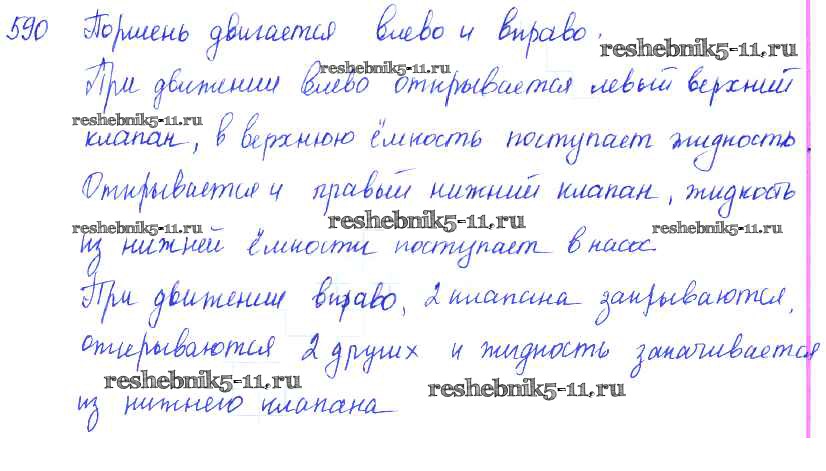 590 Поршень двигается влево и вправо.
reshebnik5-11.ru
reshebnik5-11.ru
При движении влево открывается левый верхний
reshebnik5-11.ru
клапан, в верхнюю ёмкость поступает жидкость.
Открывается и правый нижний клапан, жидкость
reshebnik5-11.ru
reshebnik5-11.ru
reshebnik5-11.ru
из нижней ёмкости поступает в насос.
При движении вправо, 2 клапана закрываются,
открываются 2 других и жидкость закачивается
reshebnik5-11.ru
reshebnik5-11.ru
из нижнего клапана